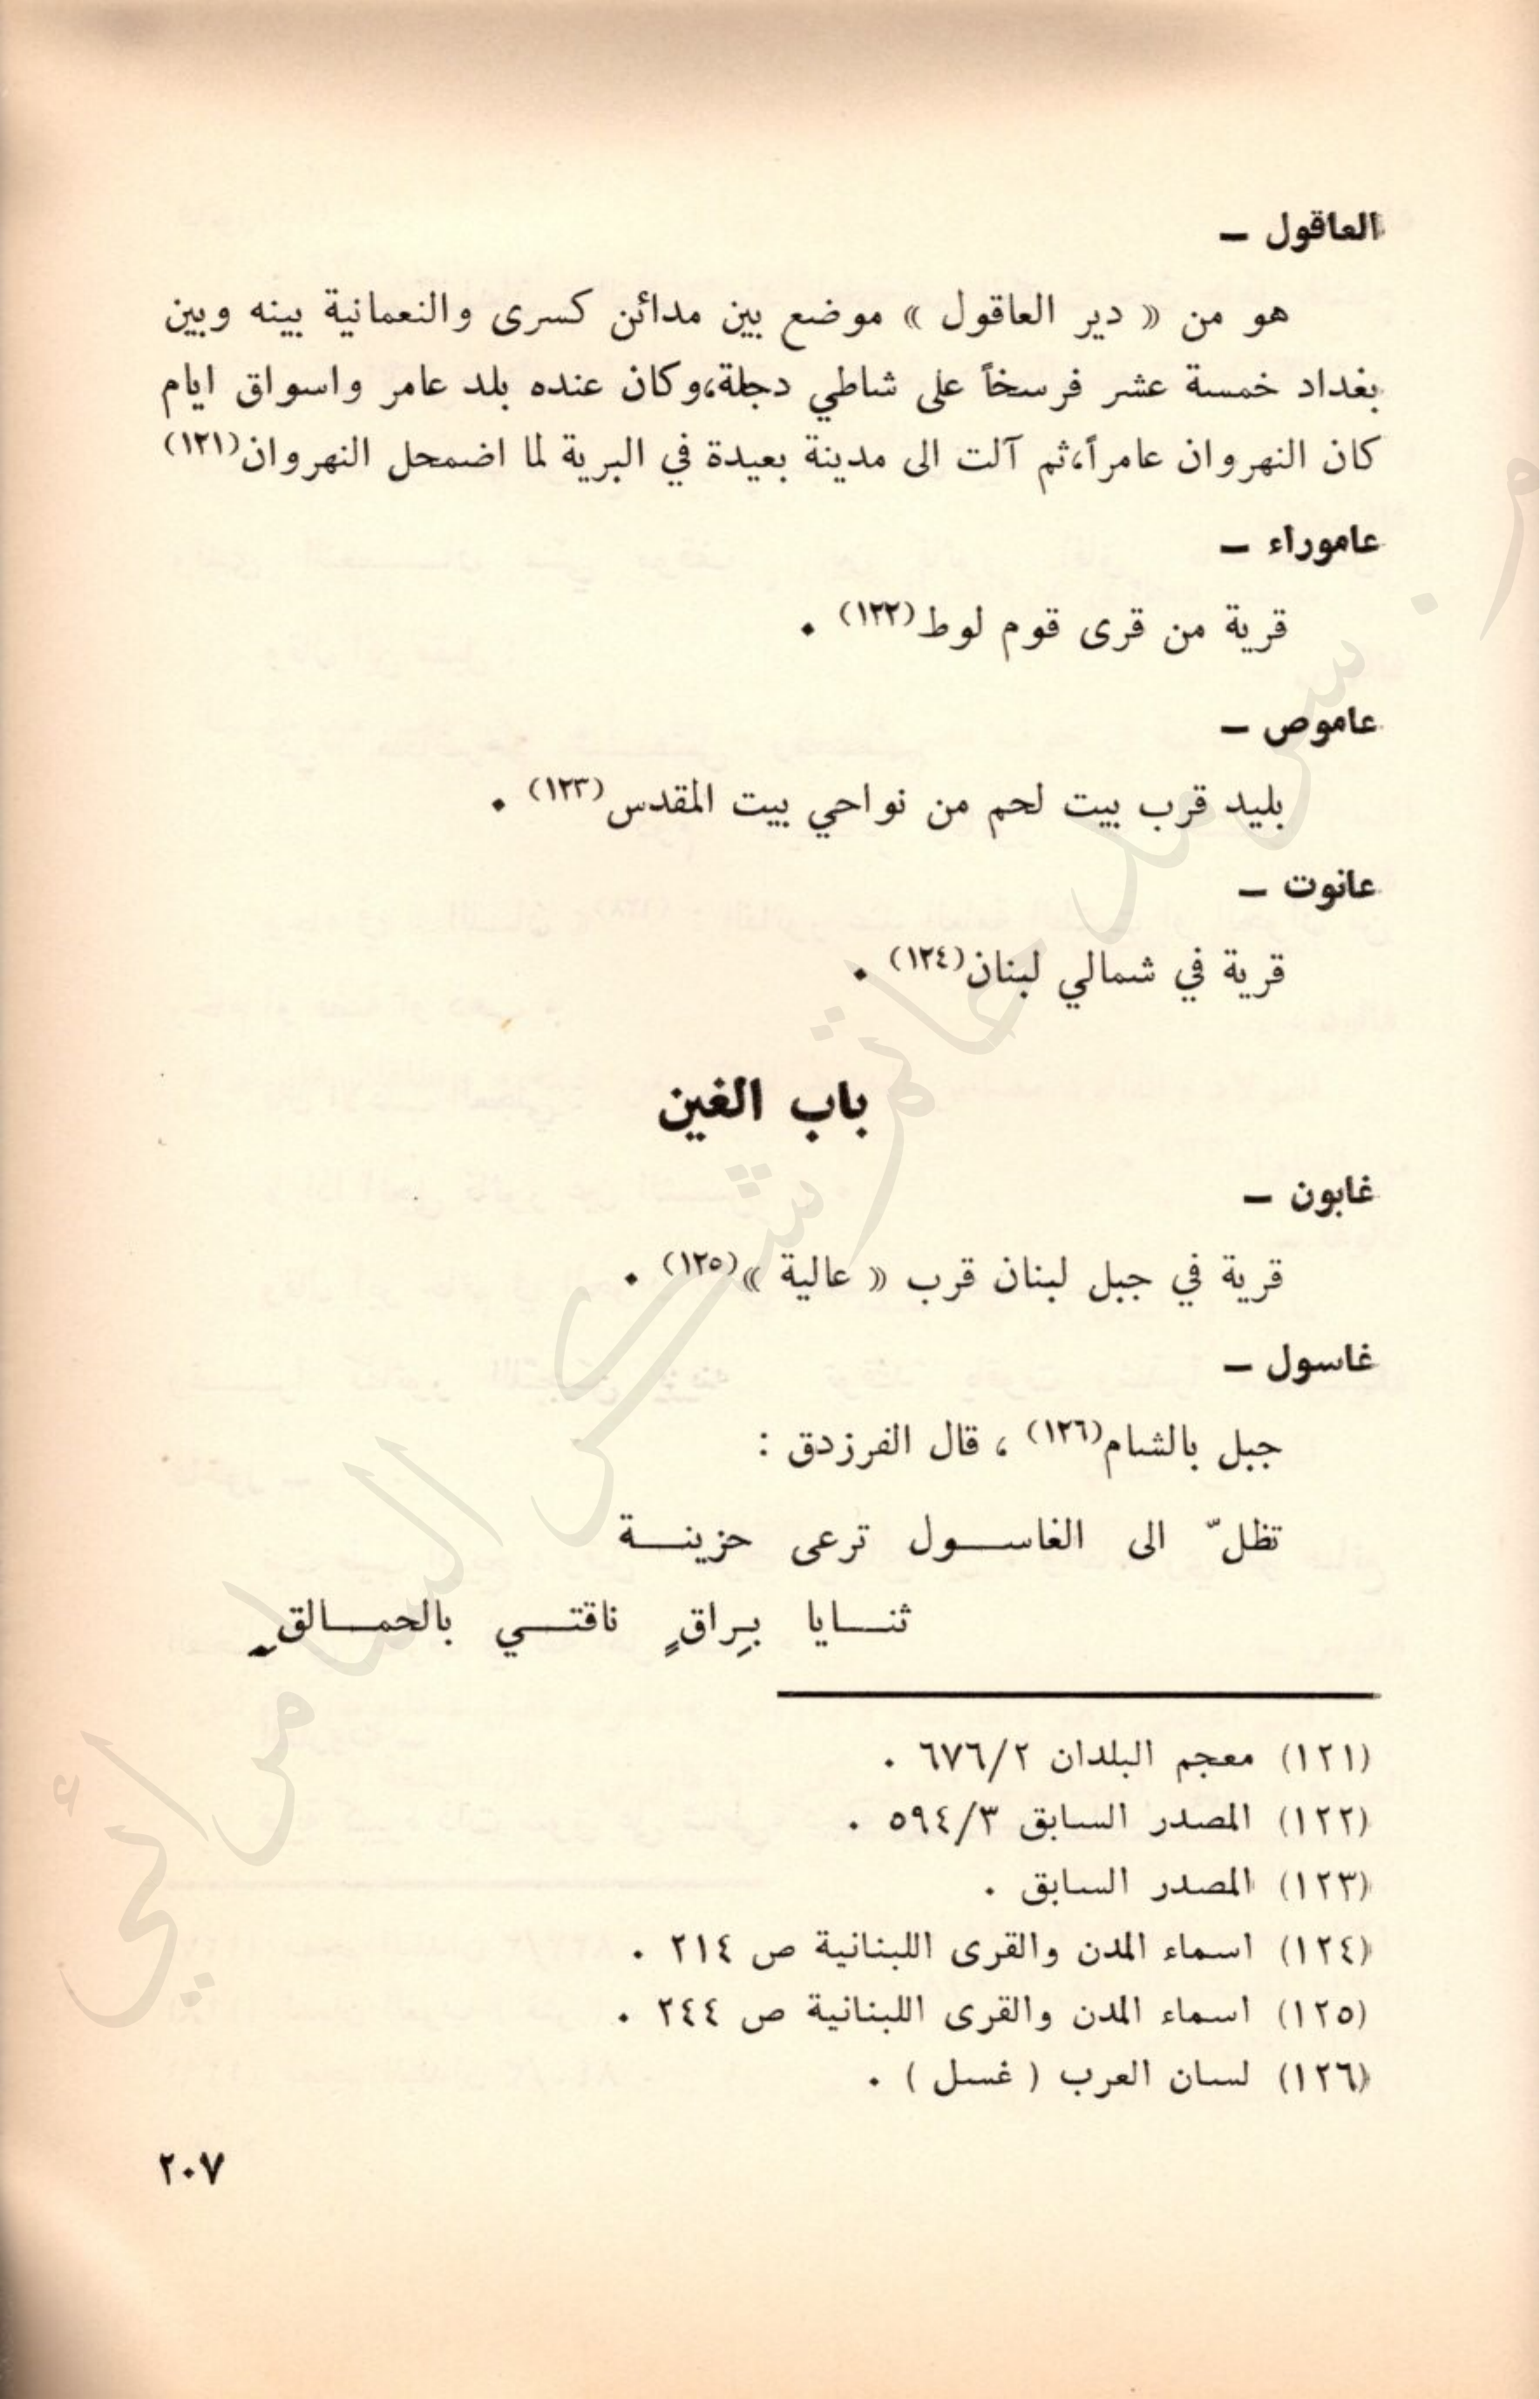 العاقول –
هو من « دير العاقول » موضع بين مدائن كسرى والنعمانية بينه وبين
بغداد خمسة عشر فرسخاً على شاطي دجلة،وكان عنده بلد عامر واسواق ايام
كان النهروان عامراً،ثم آلت الى مدينة بعيدة في البرية لما اضمحل النهروان(١٢١)
عاموراء –
قرية من قرى قوم لوط(١٢٢) .
عاموص –
بليد قرب بيت لحم من نواحي بيت المقدس(١٢٣) .
عانوت –
قرية في شمالي لبنان(١٢٤) .
باب الغين
غابون –
قرية في جبل لبنان قرب « عالية »(١٢٥) .
غاسول –
جبل بالشام(١٢٦) ، قال الفرزدق :
تظلّ الى الغاســول ترعى حزينــة
ثنــايا بِراقٍ ناقتــي بالحمــالقِ
(١٢١) معجم البلدان ٦٧٦/٢ .
(١٢٢) المصدر السابق ٥٩٤/٣ .
(١٢٣) المصدر السابق .
(١٢٤) اسماء المدن والقرى اللبنانية ص ٢١٤ .
(١٢٥) اسماء المدن والقرى اللبنانية ص ٢٤٤ .
(١٢٦) لسان العرب ( غسل ) .
٢٠٧